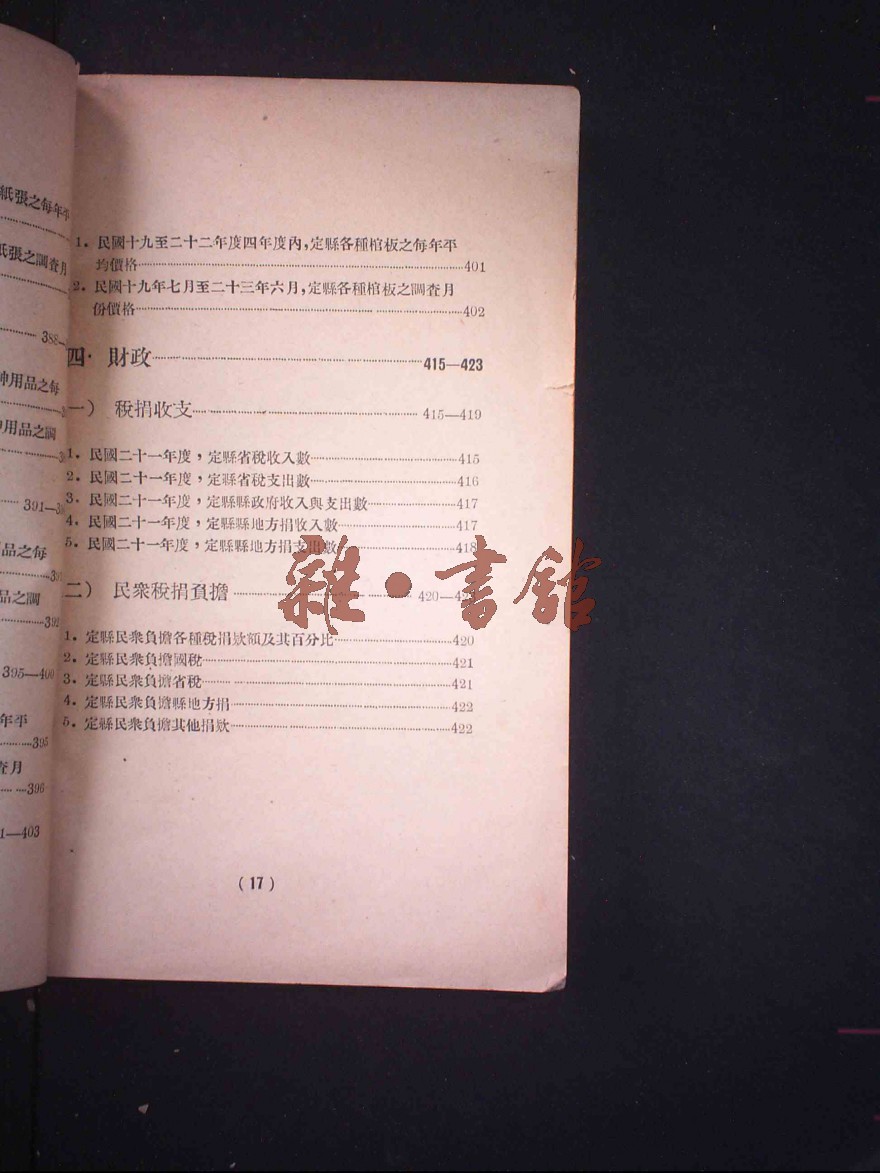 紙張之每年平
紙張之調查月
388—
用品之每
用品之調
391—
品之每
品之調
392
395—400
年平
395
查月
396
1—403
1. 民國十九至二十二年度四年度內，定縣各種棺板之每年平
均價格 401
2. 民國十九年七月至二十三年六月，定縣各種棺板之調查月
份價格 402
四· 財政 415—423
一） 稅捐收支 415—419
1. 民國二十一年度，定縣省稅收入數 415
2. 民國二十一年度，定縣省稅支出數 416
3. 民國二十一年度，定縣縣政府收入與支出數 417
4. 民國二十一年度，定縣縣地方捐收入數 417
5. 民國二十一年度，定縣縣地方捐支出數 418
二） 民衆稅捐負擔 420—42
1. 定縣民衆負擔各種稅捐欵額及其百分比 420
2. 定縣民衆負擔國稅 421
3. 定縣民衆負擔省稅 421
4. 定縣民衆負擔縣地方捐 422
5. 定縣民衆負擔其他捐欵 422
雜·書館
(17)